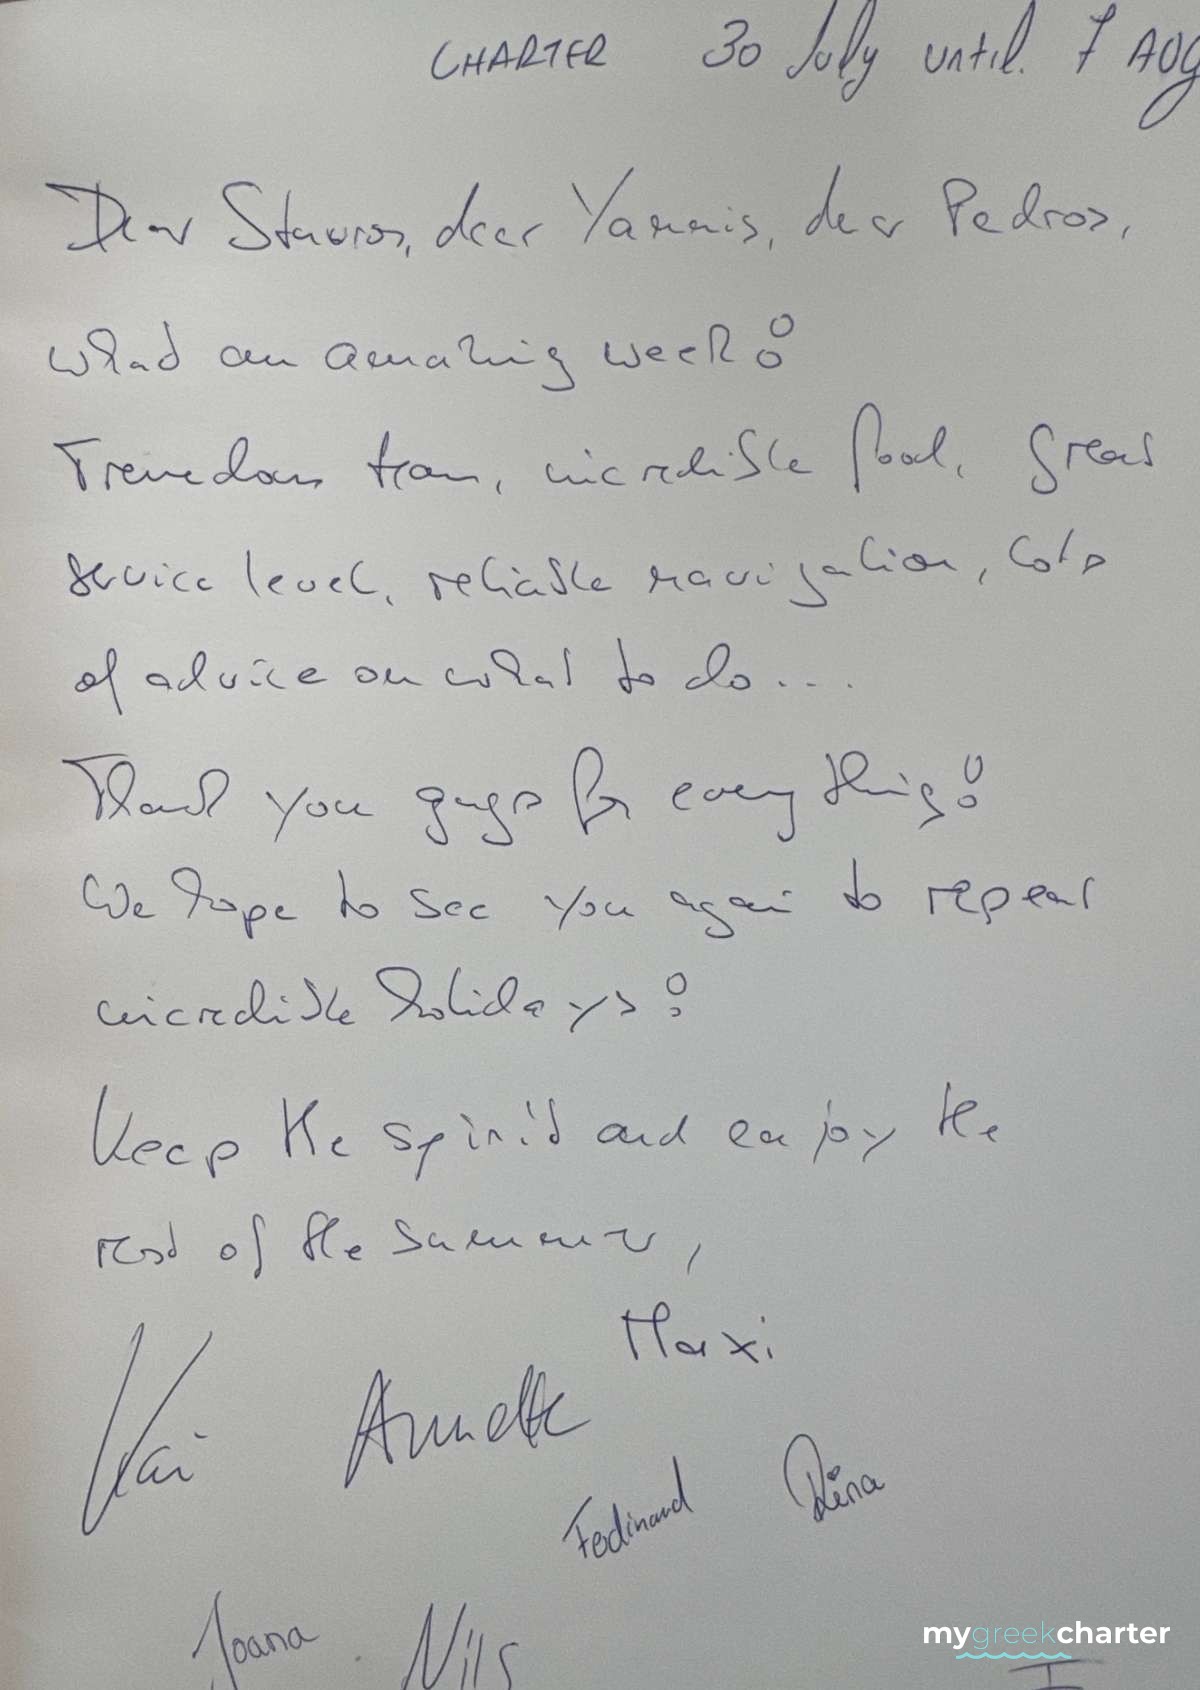 CHARTER 30 July until 7 AUG
Dear Stavros, dear Yannis, dear Pedros,
what an amazing week!
Tremendous team, incredible food, great
service level, reliable navigation, lots
of advice on what to do...
Thank you guys for everything!
We hope to see you again to repeat
incredible holidays!
Keep the spirit and enjoy the
rest of the summer,
Maxi
Kai Annette
Ferdinand
Joana Nils
mygreekcharter